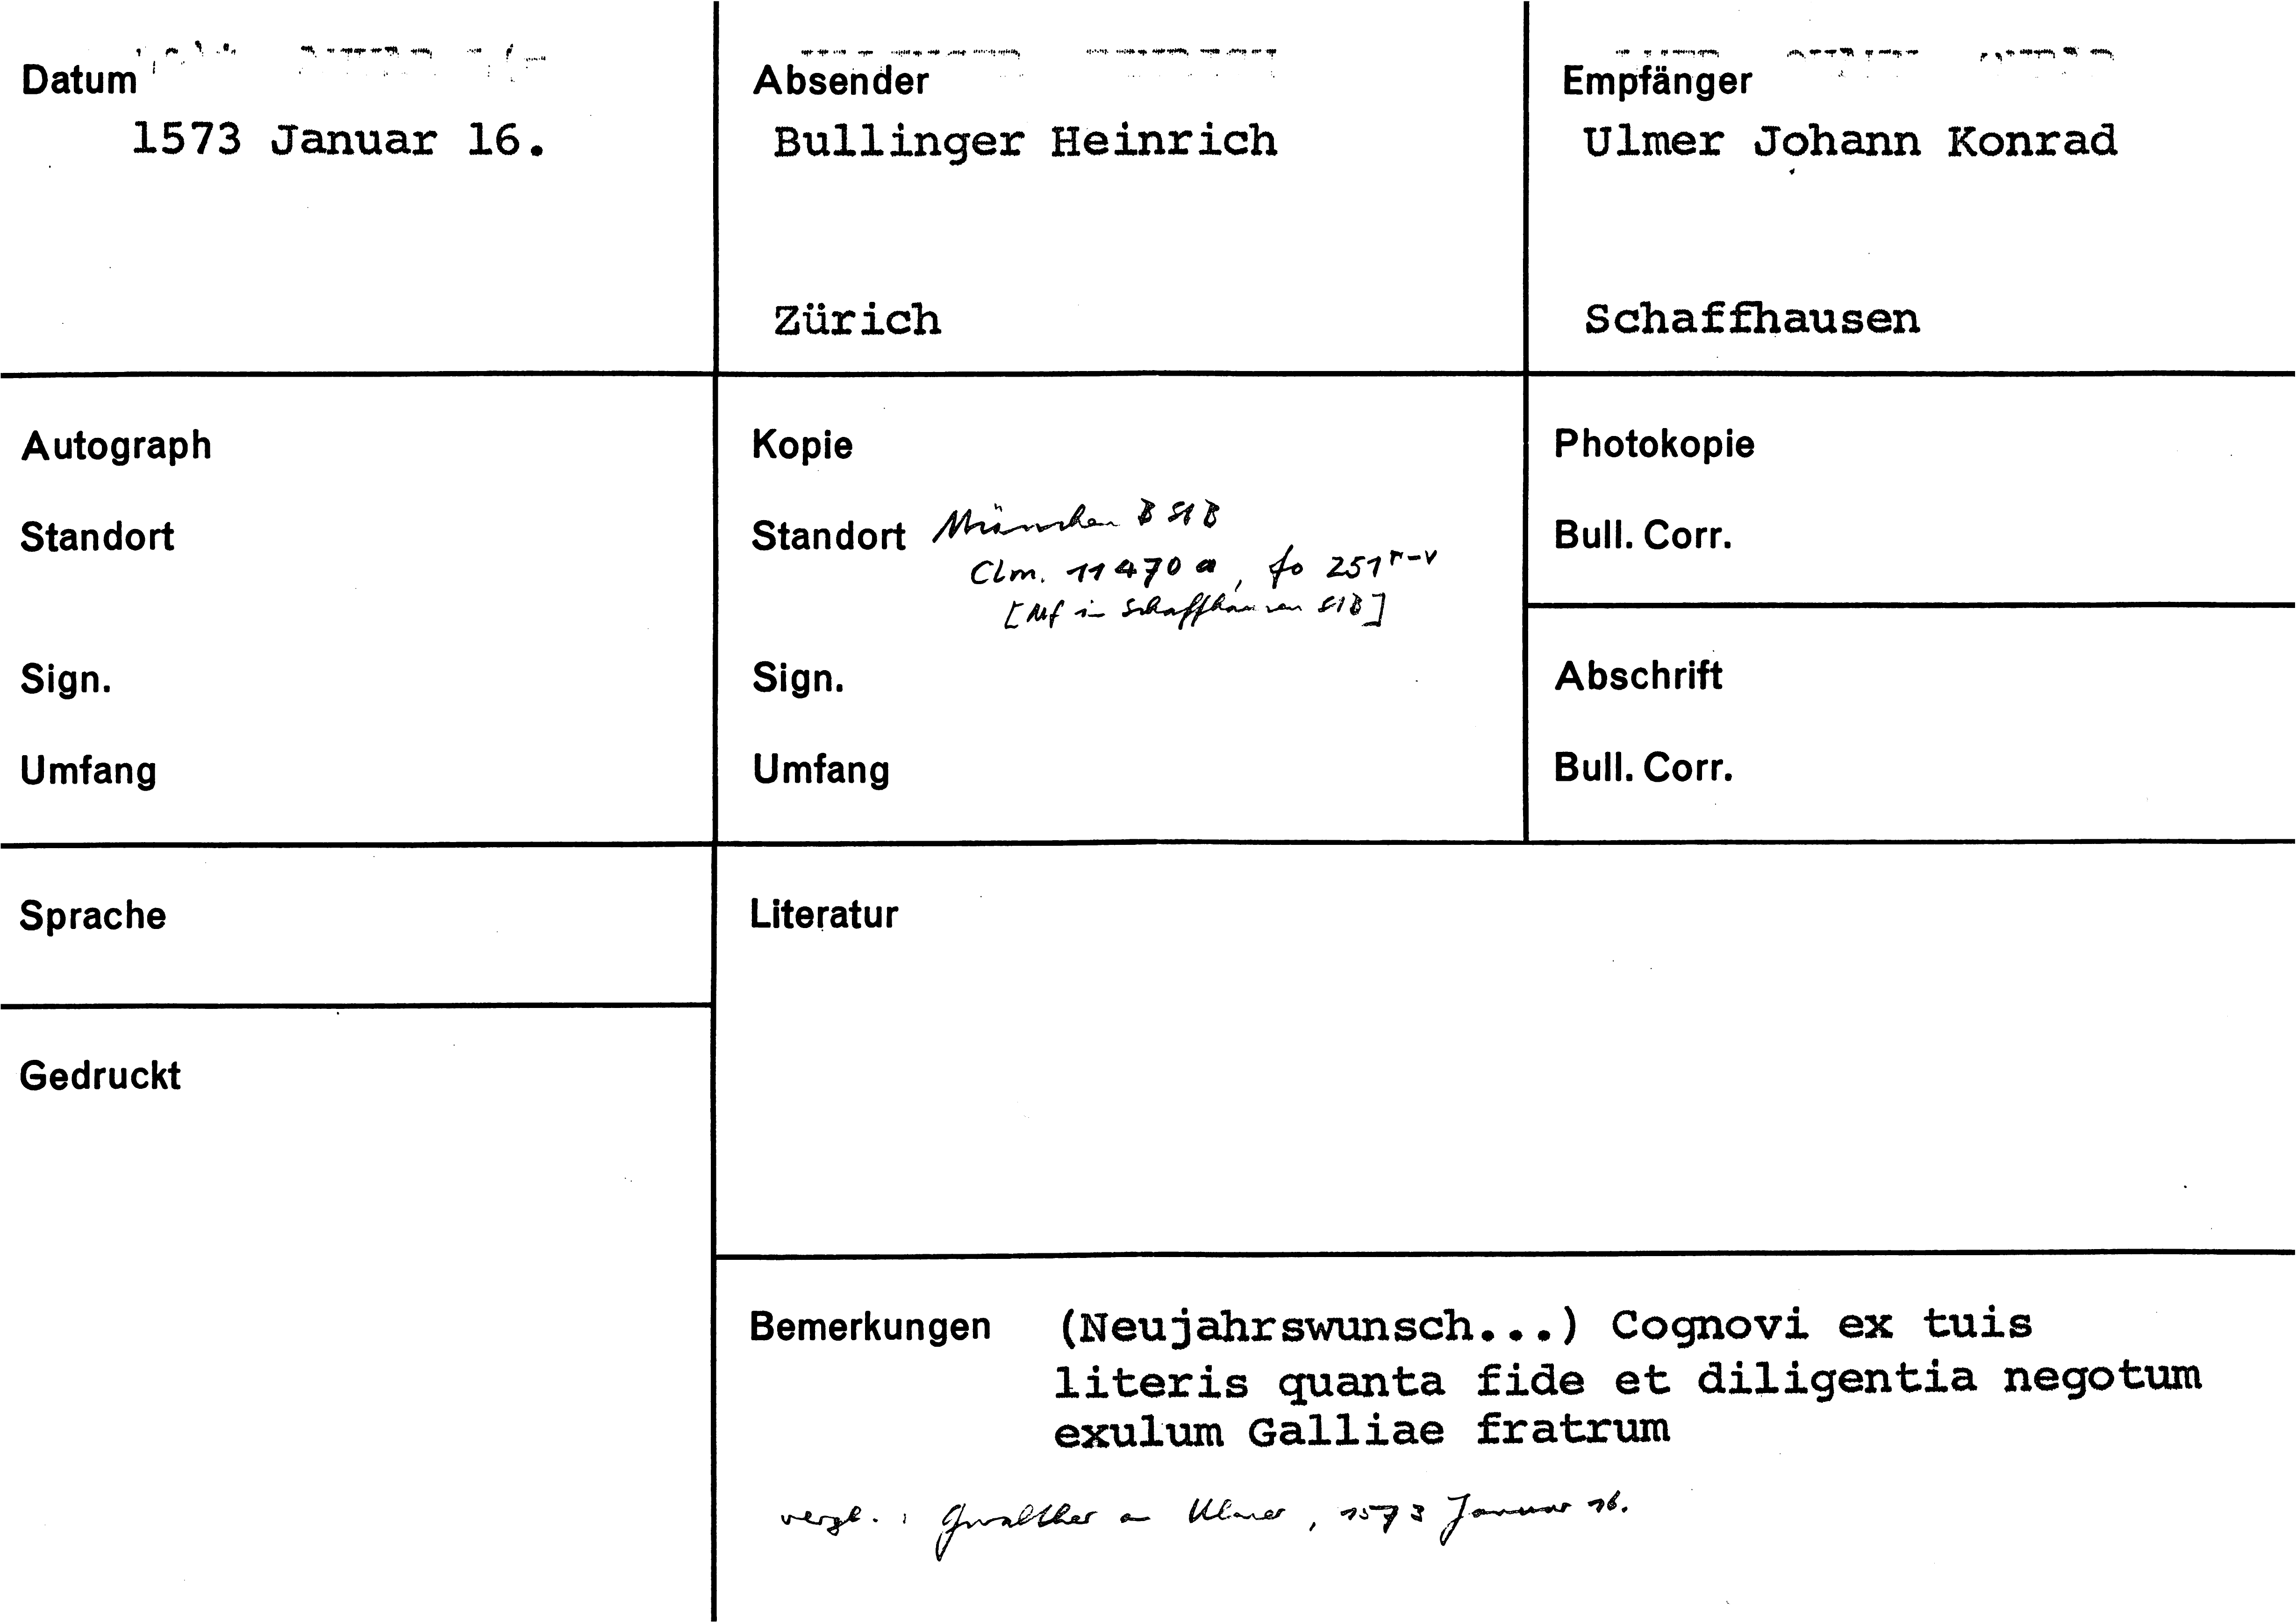 Datum
1573 Januar 16.
Absender
Bullinger Heinrich
Zürich
Empfänger
Ulmer Johann Konrad
Schaffhausen
Autograph
Standort
Sign.
Umfang
Kopie
Standort München BStB
Clm. 11470 a, fo 251r-v
[Mf in Schaffhausen StB]
Sign.
Umfang
Photokopie
Bull. Corr.
Abschrift
Bull. Corr.
Sprache
Literatur
Gedruckt
Bemerkungen (Neujahrswunsch...) Cognovi ex tuis
literis quanta fide et diligentia negotum
exulum Galliae fratrum
vergl.: Gwalther an Ulmer, 1573 Januar 16.